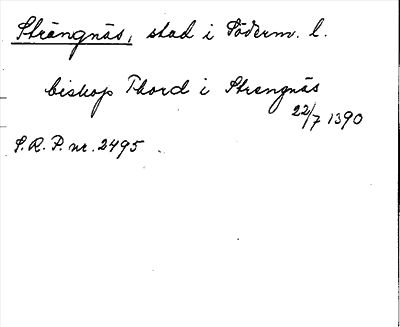 Strängnäs, stad i Söderm. l.
biskop Thord i Strengnäs
22/7 1390
S.R.P. nr. 2495